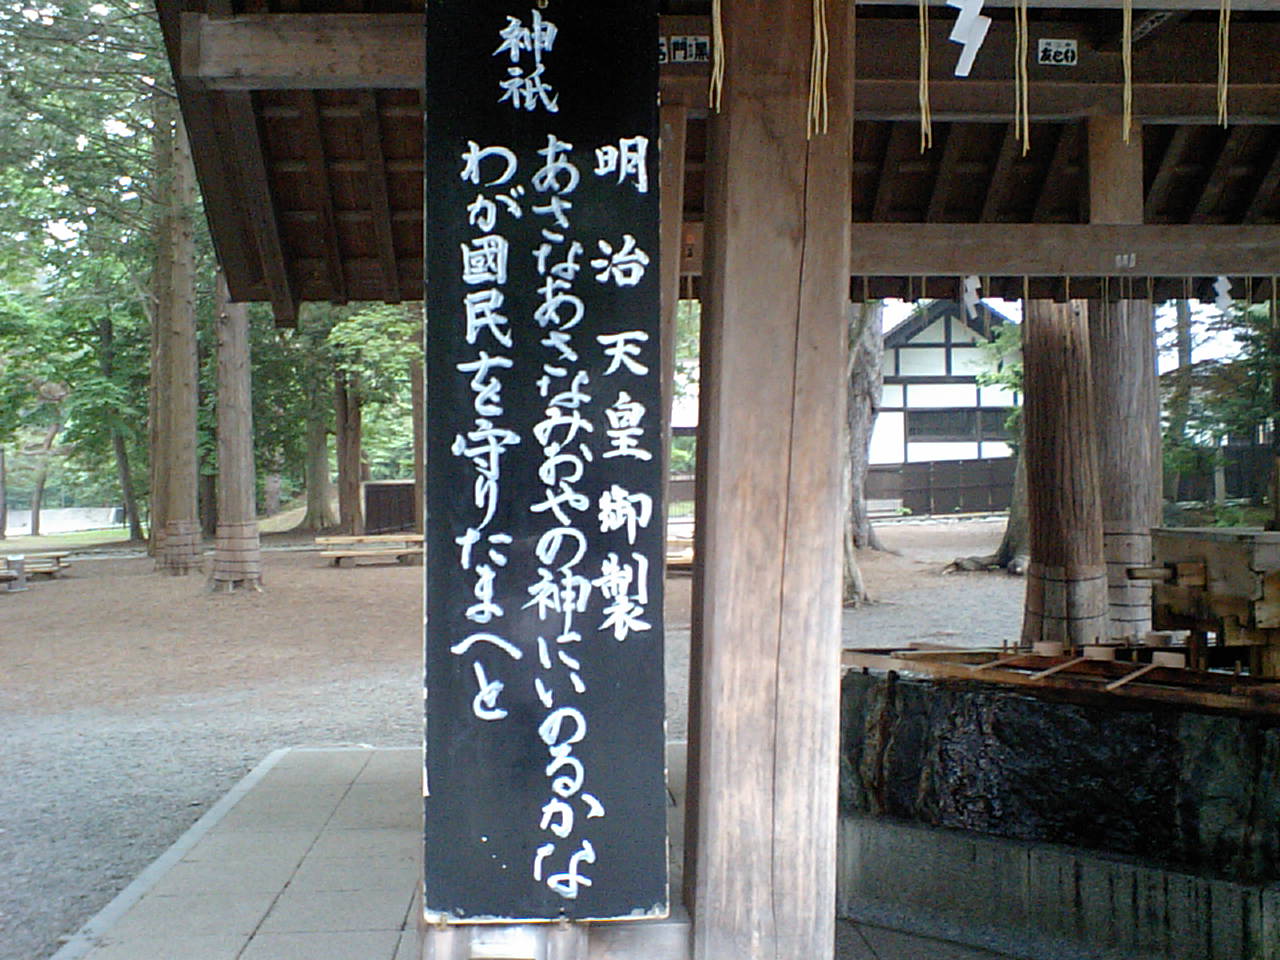 神祇
明治天皇御製
あさなあさなみおやの神にいのるかな
わが國民を守りたまへと